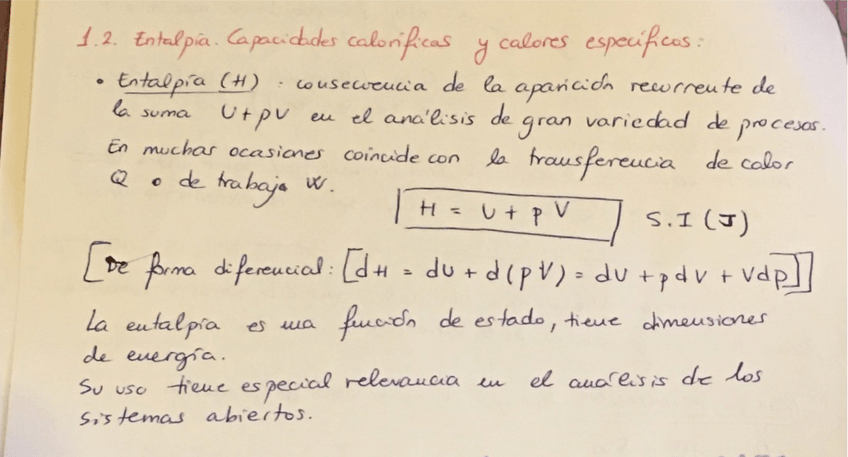 1.2. Entalpía. Capacidades caloríficas y calores específicos:
• Entalpía (H). consecuencia de la aparición recurrente de
la suma U+pV en el análisis de gran variedad de procesos.
En muchas ocasiones coincide con la transferencia de calor
Q o de trabajo W.
H = U + p V S.I (J)
[De forma diferencial: [dH = dU + d(pV) = dU + pdV + Vdp]]
La entalpía es una función de estado, tiene dimensiones
de energía.
Su uso tiene especial relevancia en el análisis de los
sistemas abiertos.